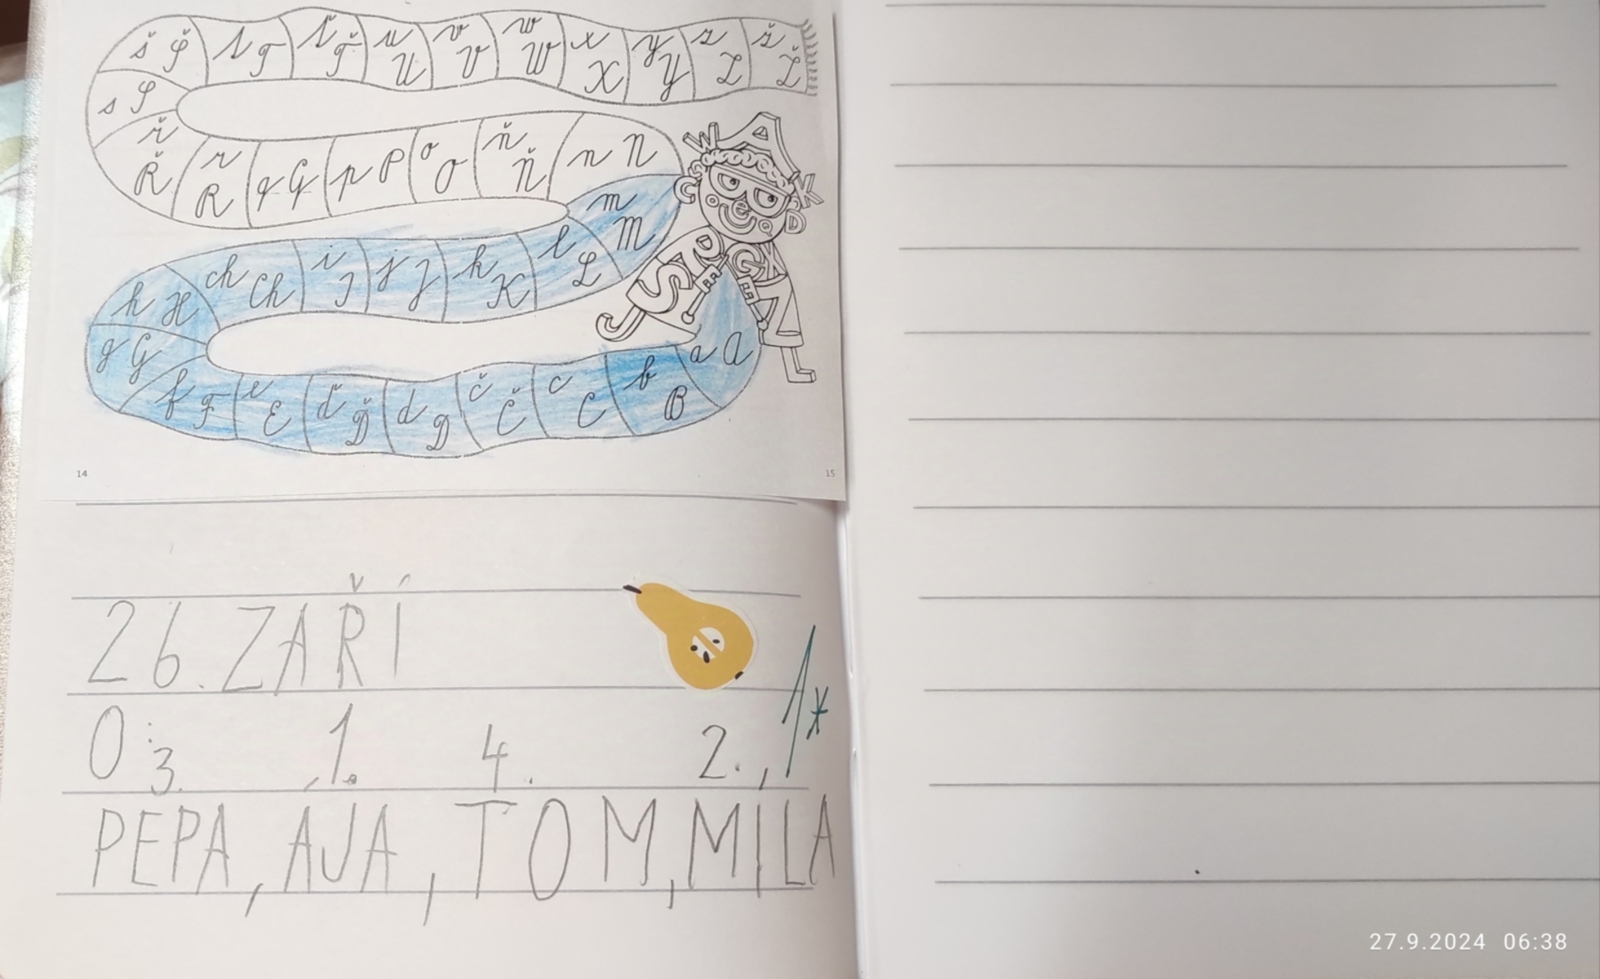 š Š t T ť Ť u U v V w W x X y Y z Z ž Ž
s S
ř Ř r R q Q p P o O ň Ň n N
m M
h H ch Ch i I j J k K l L
g G
f F e E ď Ď d D č Č c C b B a A
14 15
26. ZÁŘÍ
O: 3. 1. 4. 2. 1*
PEPA, ÁJA, TOM, MÍLA
27.9.2024 06:38